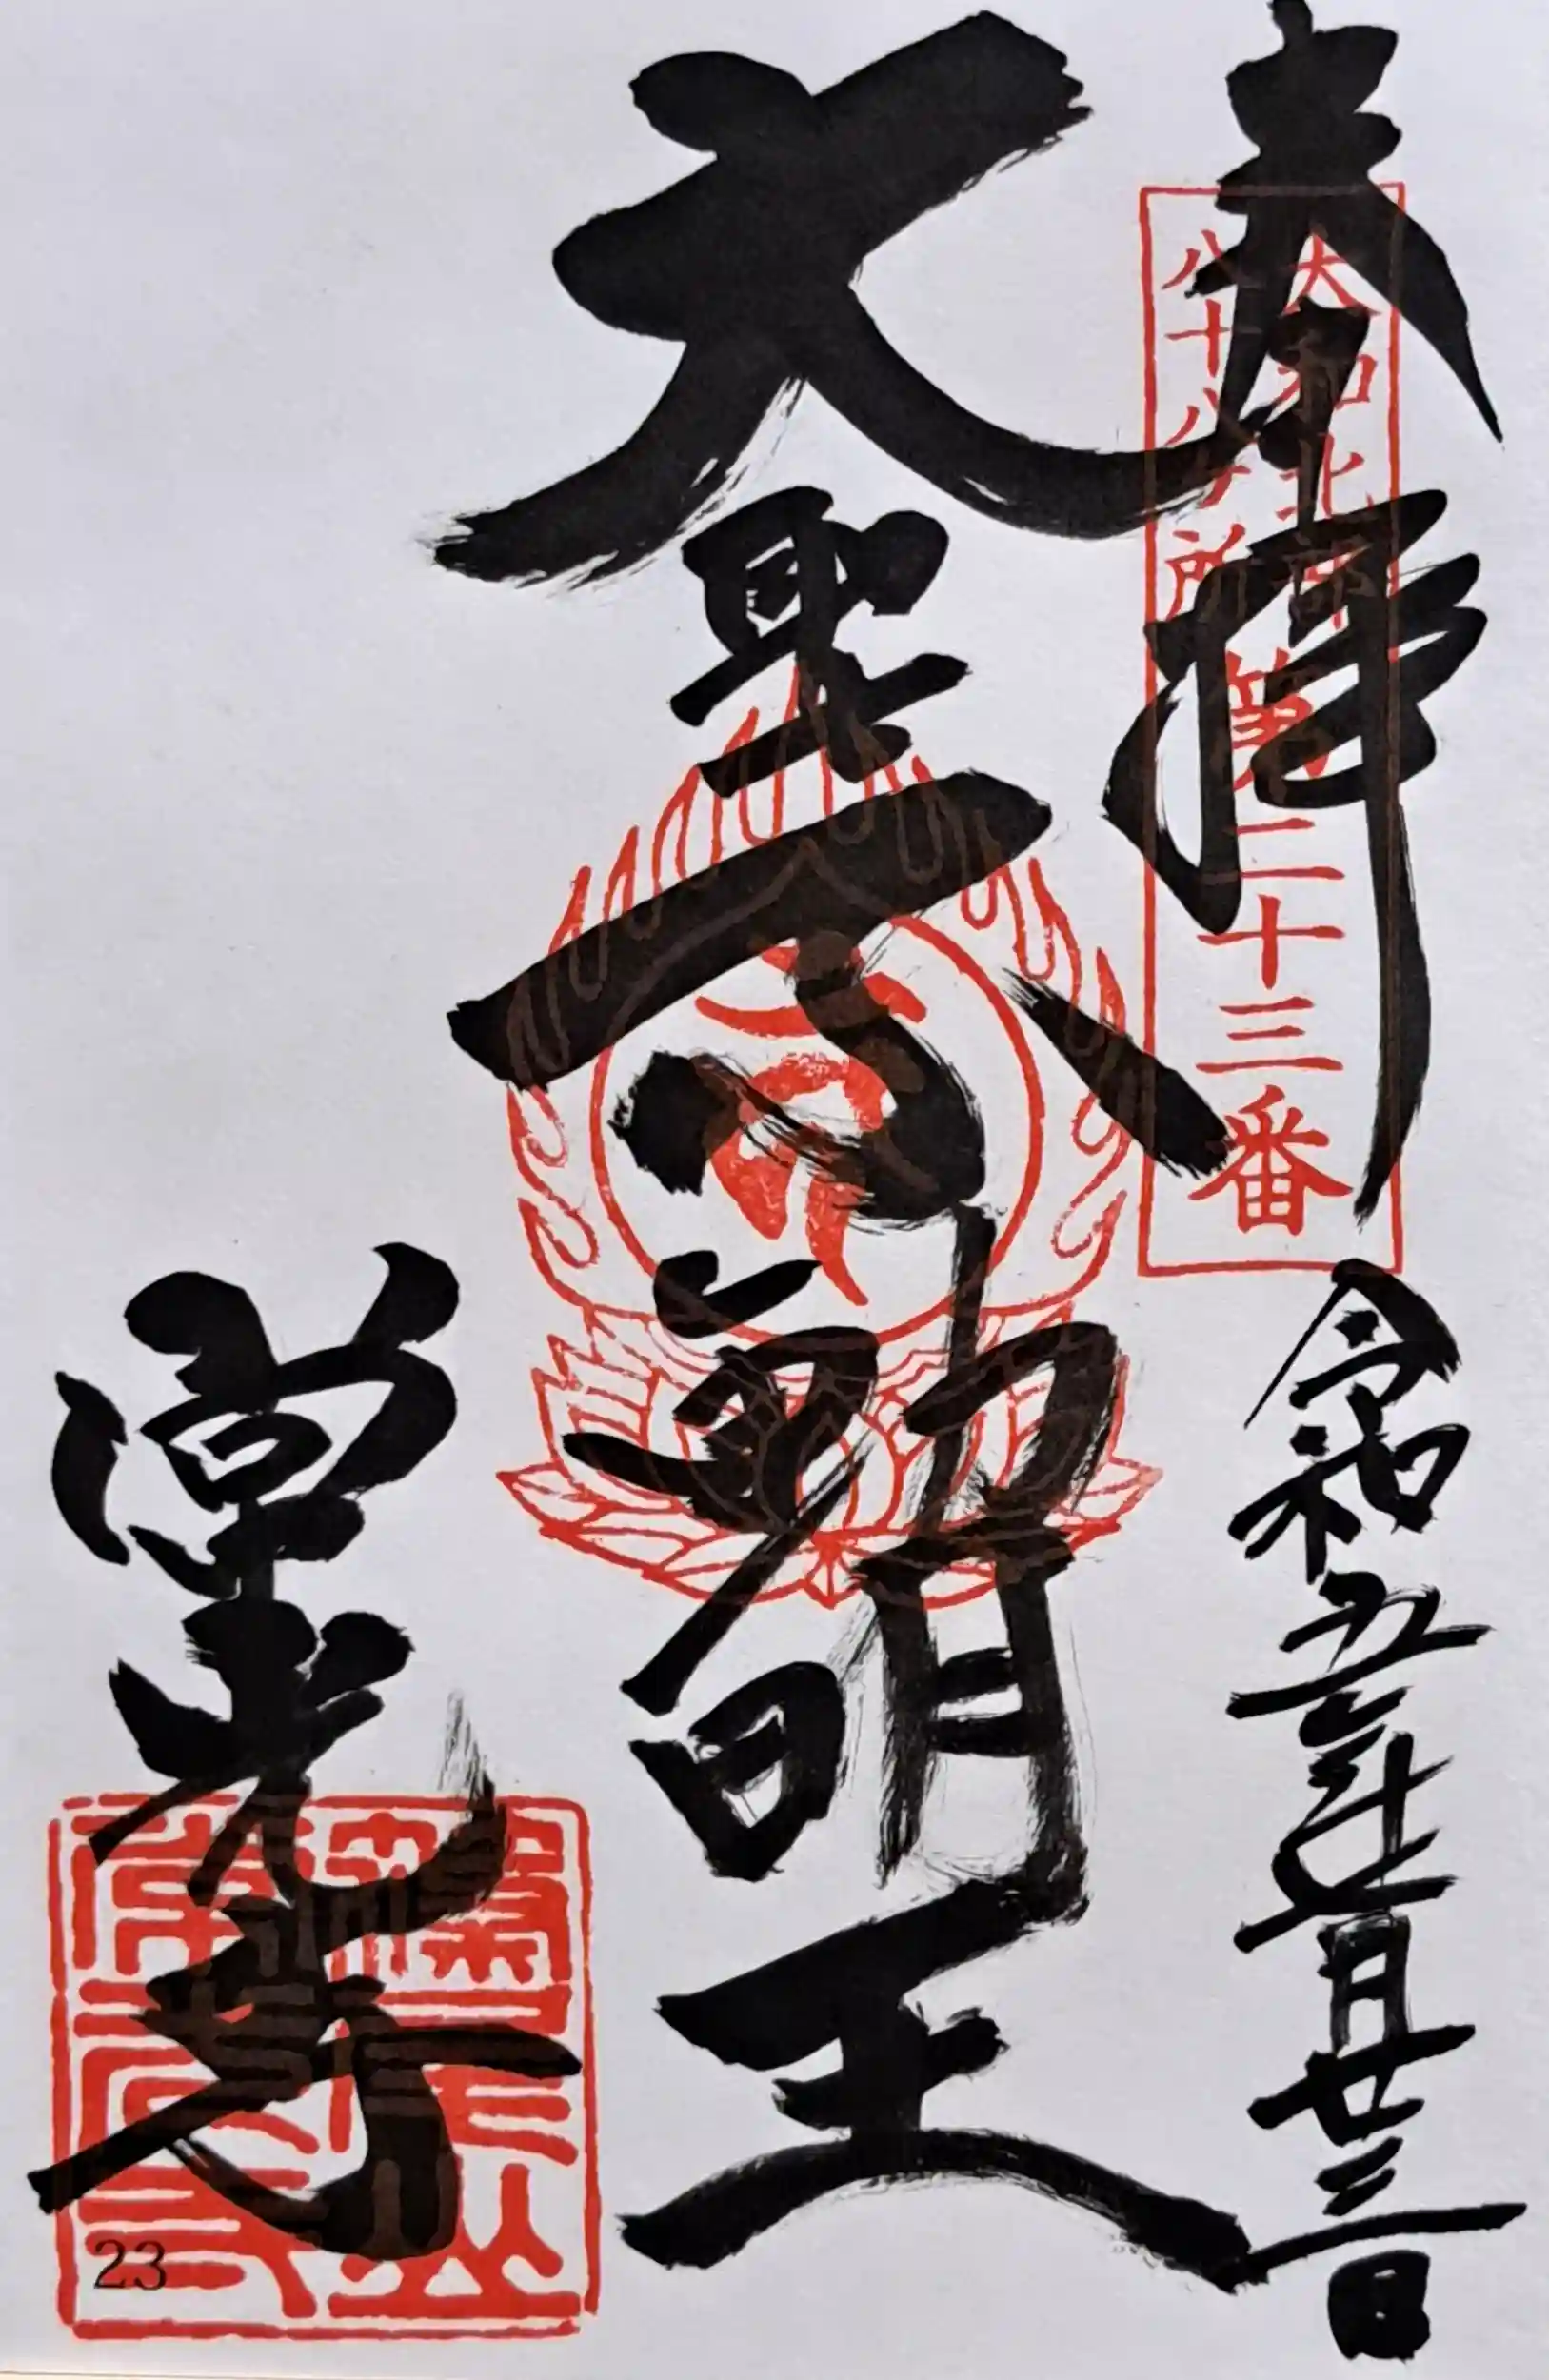 奉拝
令和五年
月廿三日
大和北部
八十八ヶ所
第二十三番
大聖不動明王
常光寺
23